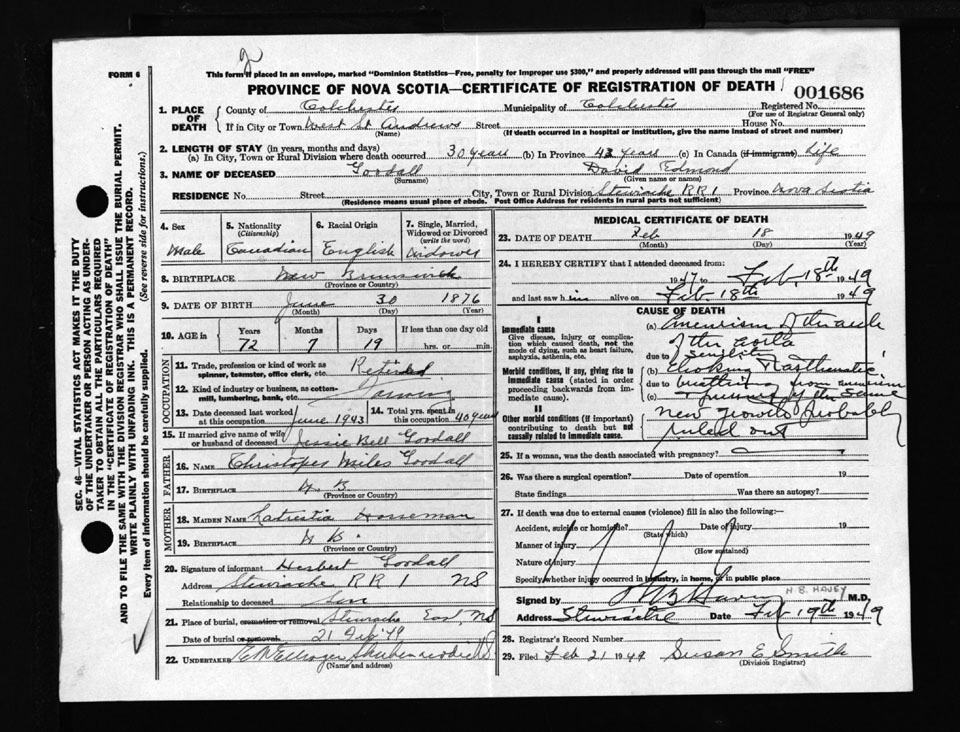 2
FORM 6
This form if placed in an envelope, marked "Dominion Statistics—Free, penalty for improper use $300," and properly addressed will pass through the mail "FREE"
PROVINCE OF NOVA SCOTIA—CERTIFICATE OF REGISTRATION OF DEATH
001686
1. PLACE OF DEATH
County of Colchester Municipality of Colchester Registered No.
(For use of Registrar General only)
If in City or Town West St Andrews Street House No.
(Name) (If death occurred in a hospital or institution, give the name instead of street and number)
2. LENGTH OF STAY (in years, months and days)
(a) In City, Town or Rural Division where death occurred 30 years (b) In Province 43 years (c) In Canada (if immigrant) Life
3. NAME OF DECEASED Goodall David Edmond
(Surname) (Given name or names)
RESIDENCE No. Street City, Town or Rural Division Stewiacke RR 1 Province Nova Scotia
(Residence means usual place of abode. Post Office Address for residents in rural parts not sufficient)
4. Sex Male
5. Nationality (Citizenship) Canadian
6. Racial Origin English
7. Single, Married, Widowed or Divorced (write the word) Widower
8. BIRTHPLACE New Brunswick
(Province or Country)
9. DATE OF BIRTH June 30 1876
(Month) (Day) (Year)
10. AGE in Years Months Days If less than one day old
72 7 19 hrs. or min.
OCCUPATION
11. Trade, profession or kind of work as spinner, teamster, office clerk, etc. Retired
12. Kind of industry or business, as cotton-mill, lumbering, bank, etc. Farming
13. Date deceased last worked at this occupation June 1943
14. Total yrs. spent in this occupation 40 years
15. If married give name of wife or husband of deceased Jessie Bell Goodall
FATHER
16. NAME Christopher Miles Goodall
17. BIRTHPLACE N B
(Province or Country)
MOTHER
18. MAIDEN NAME Horseman
19. BIRTHPLACE N B.
(Province or Country)
20. Signature of informant Herbert Goodall
Address Stewiacke RR 1 NS
Relationship to deceased Son
21. Place of burial, cremation or removal Stewiacke East, NS
Date of burial or removal 21 Feb '49
22. UNDERTAKER
(Name and address)
MEDICAL CERTIFICATE OF DEATH
23. DATE OF DEATH Feb 18 1949
(Month) (Day) (Year)
24. I HEREBY CERTIFY that I attended deceased from:
1947 to Feb. 18th 1949
and last saw him alive on Feb 18th 1949
CAUSE OF DEATH
I
Immediate cause
Give disease, injury or complication which caused death, not the mode of dying, such as heart failure, asphyxia, asthenia, etc.
Morbid conditions, if any, giving rise to immediate cause (stated in order proceeding backwards from immediate cause).
II
Other morbid conditions (if important) contributing to death but not causally related to immediate cause.
(a) Aneurism of the arch
of the aorta
due to Senility
(b) Choking & asthmatic
due to breathing from aneurism
(c) & pressure of the same
New growth probably
ruled out
25. If a woman, was the death associated with pregnancy?
26. Was there a surgical operation? Date of operation 19
State findings Was there an autopsy?
27. If death was due to external causes (violence) fill in also the following:—
Accident, suicide or homicide? Date of injury 19
(State which)
Manner of injury
(How sustained)
Nature of injury
Specify whether injury occurred in industry, in home, or in public place
Signed by H B Havey M.D.
H. B. HAVEY
Address Stewiacke Date Feb 19th 1949
28. Registrar's Record Number
29. Filed Feb 21 1949 Susan E Smith
(Division Registrar)
SEC. 46—VITAL STATISTICS ACT MAKES IT THE DUTY
OF THE UNDERTAKER OR PERSON ACTING AS UNDER-
TAKER TO OBTAIN ALL THE PARTICULARS REQUIRED
IN THE "CERTIFICATE OF REGISTRATION OF DEATH"
AND TO FILE THE SAME WITH THE DIVISION REGISTRAR WHO SHALL ISSUE THE BURIAL PERMIT.
WRITE PLAINLY WITH UNFADING INK. THIS IS A PERMANENT RECORD.
Every item of information should be carefully supplied. (See reverse side for instructions.)